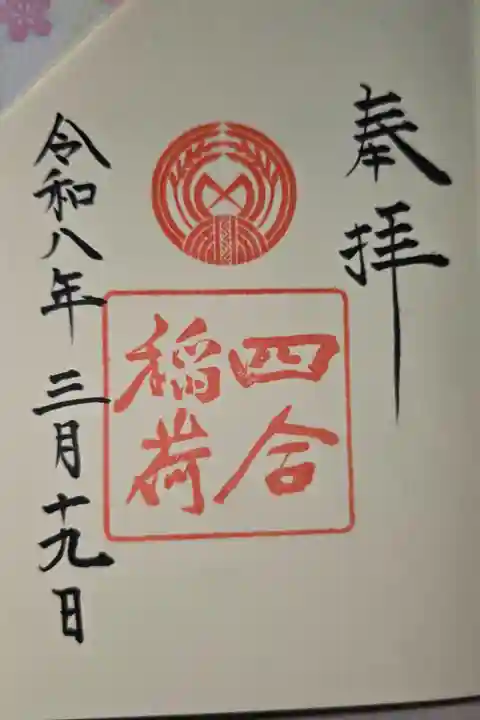 奉拝
四合
稲荷
令和八年 三月十九日